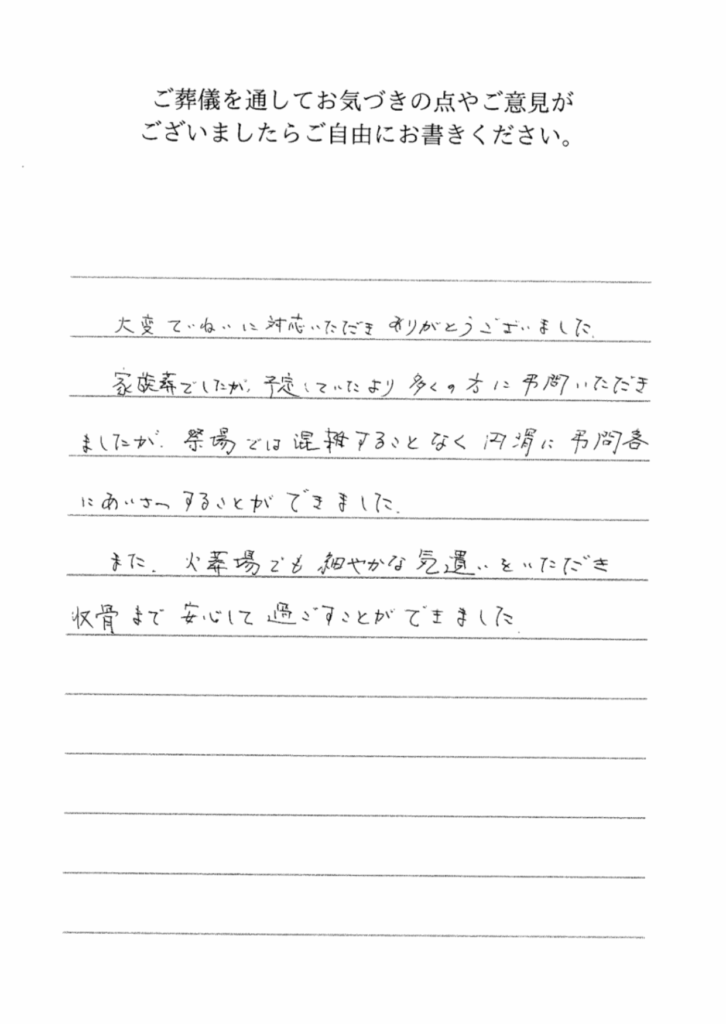 ご葬儀を通してお気づきの点やご意見が
ございましたらご自由にお書きください。
大変ていねいに対応いただきありがとうございました.
家族葬でしたが、予定していたより多くの方に弔問いただき
ましたが、祭場では混雑することなく円滑に弔問客
にあいさつすることができました.
また、火葬場でも細やかな気遣いをいただき
収骨まで安心して過ごすことができました.